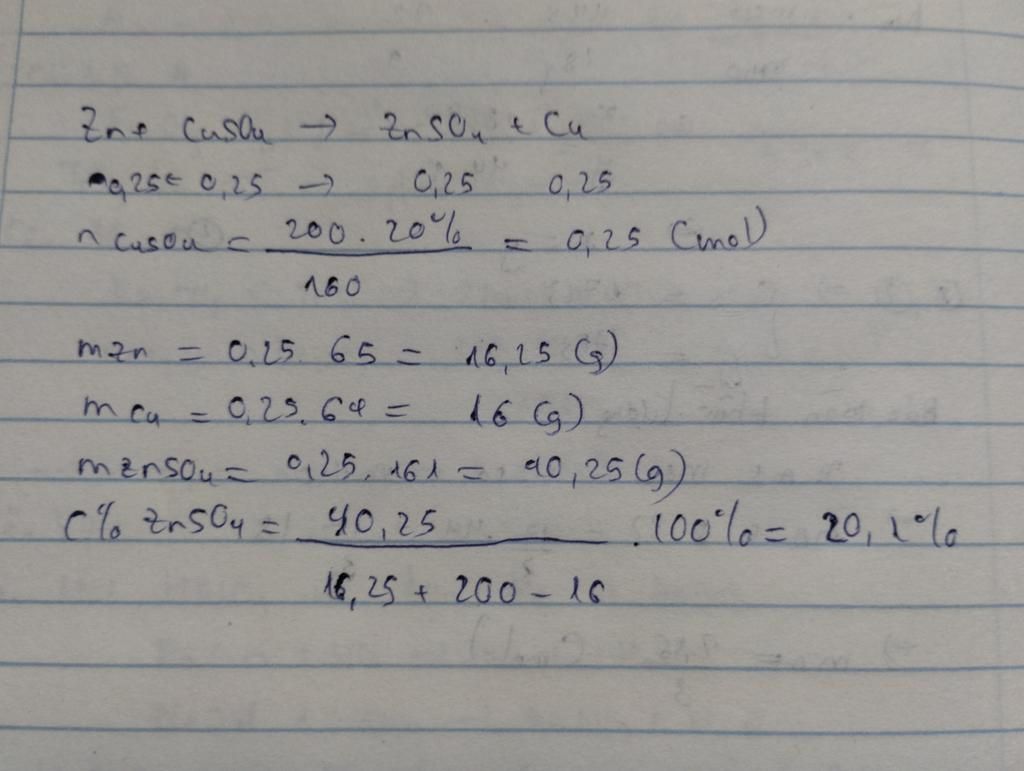 Zn + CuSO4 → ZnSO4 + Cu
0,25 ← 0,25 → 0,25 0,25
n CuSO4 = 200 . 20% / 160 = 0,25 (mol)
mZn = 0,25 . 65 = 16,25 (g)
m Cu = 0,25 . 64 = 16 (g)
mZnSO4 = 0,25 . 161 = 40,25 (g)
C% ZnSO4 = 40,25 / 16,25 + 200 - 16 . 100% = 20,1%